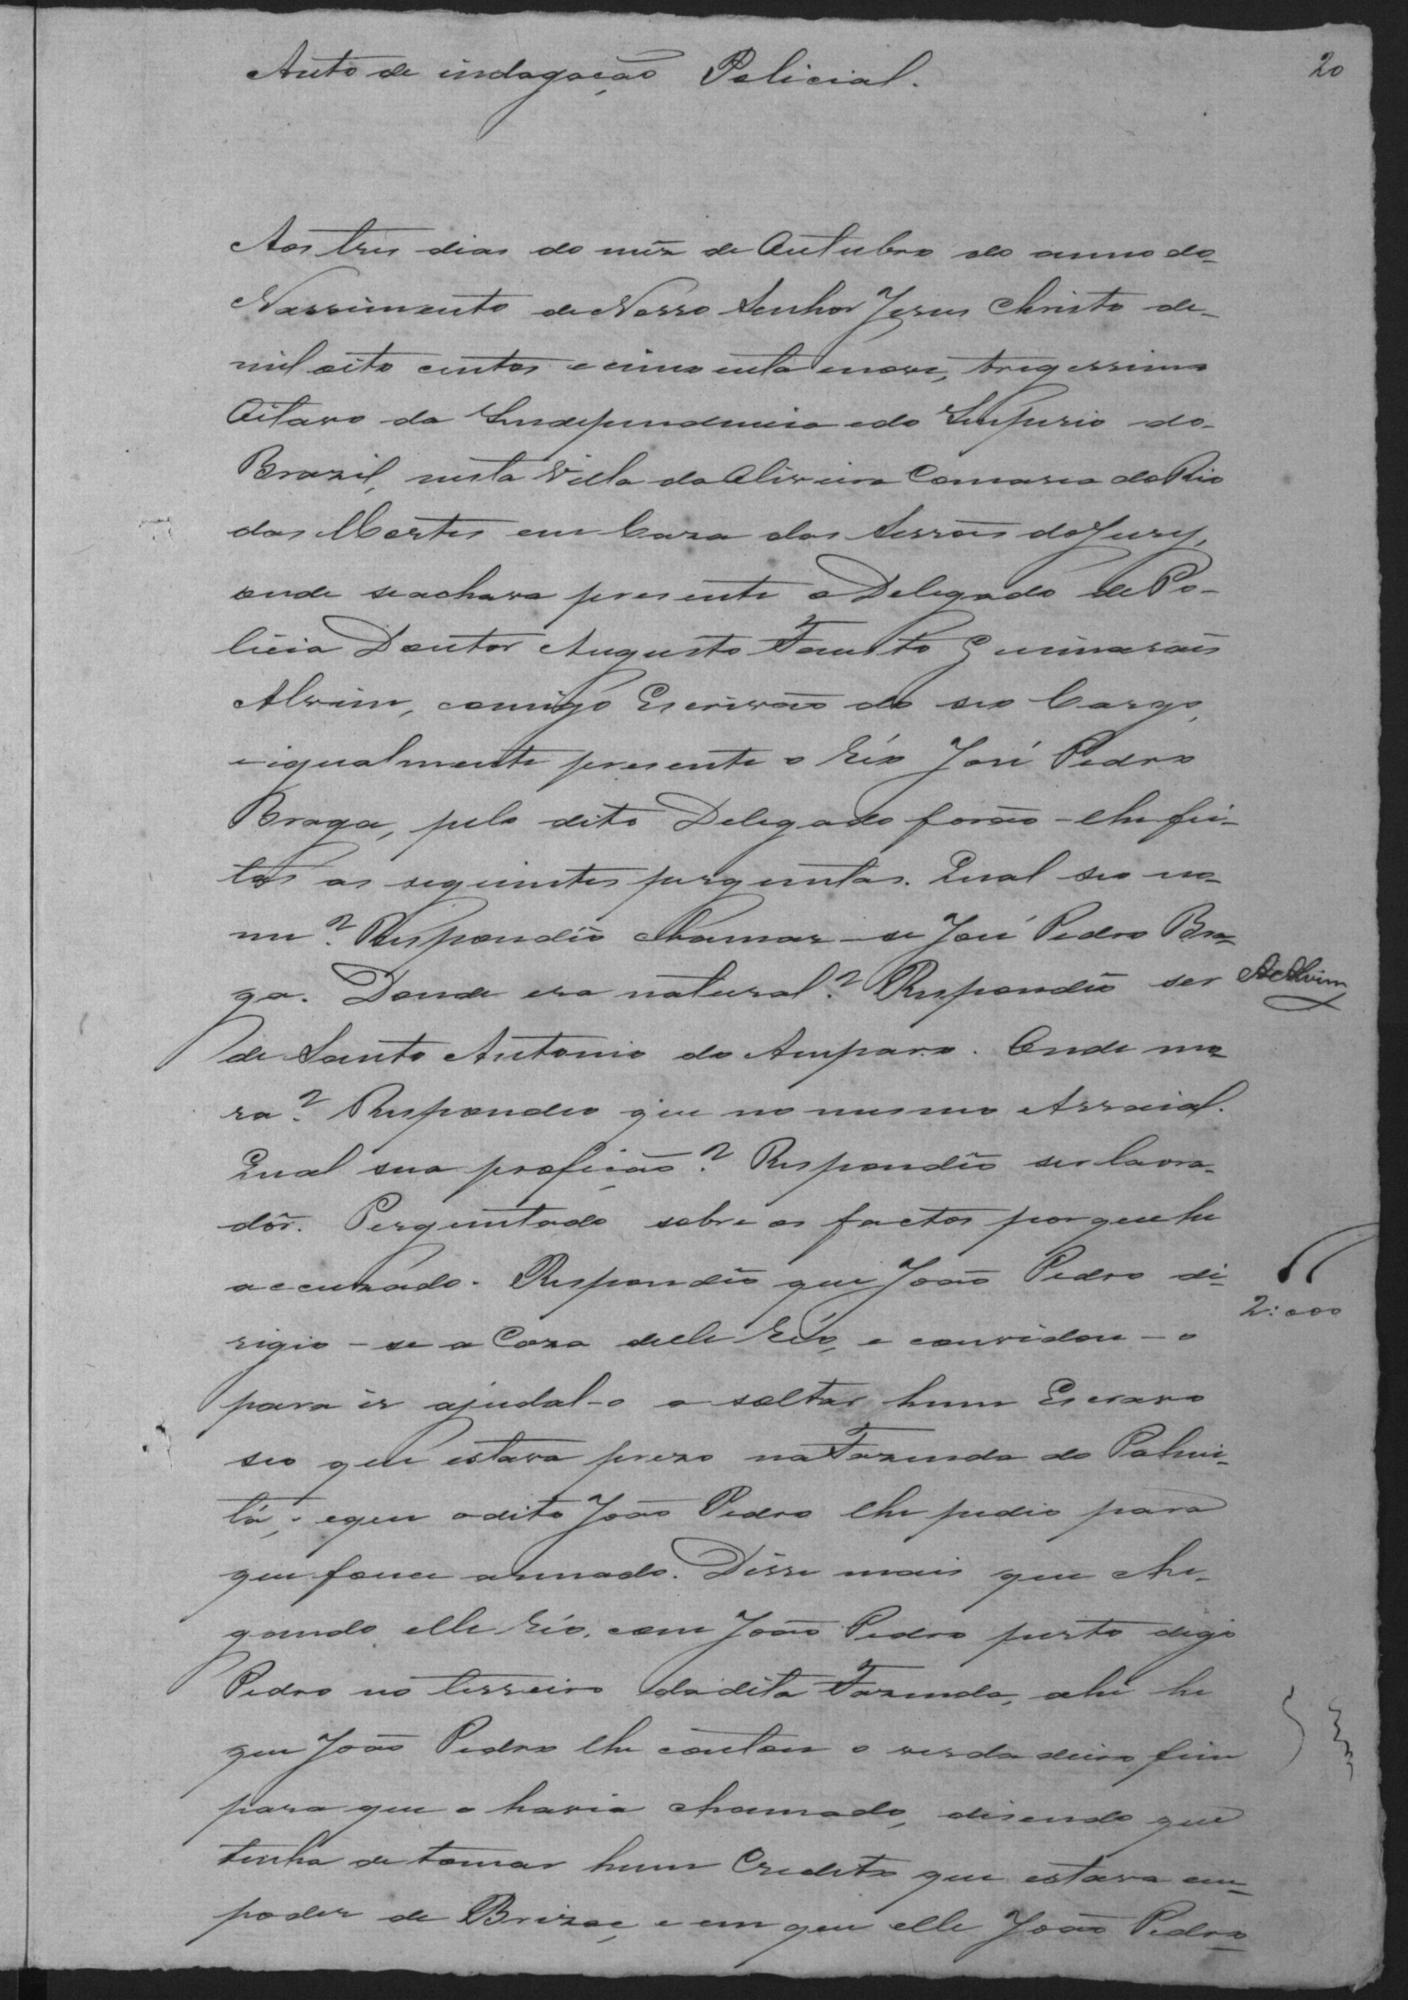 20
Auto de indagação Policial.
Aos tres dias do mez de Outubro do anno do
Nassimento de Nosso Senhor Jesus Christo de
mil oito centos e cincoenta enove, trigessimo
Oitavo da Independencia e do Imperio do
Brazil, nesta Villa da Oliveira Comarca do Rio
das Mortes em Caza das Sessoẽs do Jury,
onde se achava presente o Delegado de Po-
licia Doutor Augusto Fausto Guimaraẽs
Alvim, comigo Escrivaõ do seo Cargo,
e igualmente presente o Réo José Pedro
Braga, pelo dito Delegado foraõ-lhe fei-
tas as seguintes perguntas. Qual seo no-
me? Respondeo chamar-se José Pedro Bra-
ga. Donde era natural? Respondeo ser
A. Alvim
de Santo Antonio do Amparo. Onde mo-
ra? Respondeo que no mesmo Arraial.
Qual sua profição? Respondeo ser lavra-
dôr. Perguntado sobre os factos porque he
accuzado. Respondeo que Joaõ Pedro di-
2:000
rigio-se a Caza delle Réo, e convidou-o
para ir ajudal-o a soltar hum Escravo
seo que estava prezo na Fazenda do Palmi-
tá, e que o dito Joaõ Pedro lhe pedio para
que fouce armado. Disse mais que che-
gando elle Réo, com Joaõ Pedro perto digo
Pedro no terreiro da dita Fazenda, ahi he
que Joaõ Pedro lhe contou o verdadeiro fim
para que o havia chamado, disendo que
tinha de tomar hum Credito que estava em
poder de e em que elle Joaõ Pedro